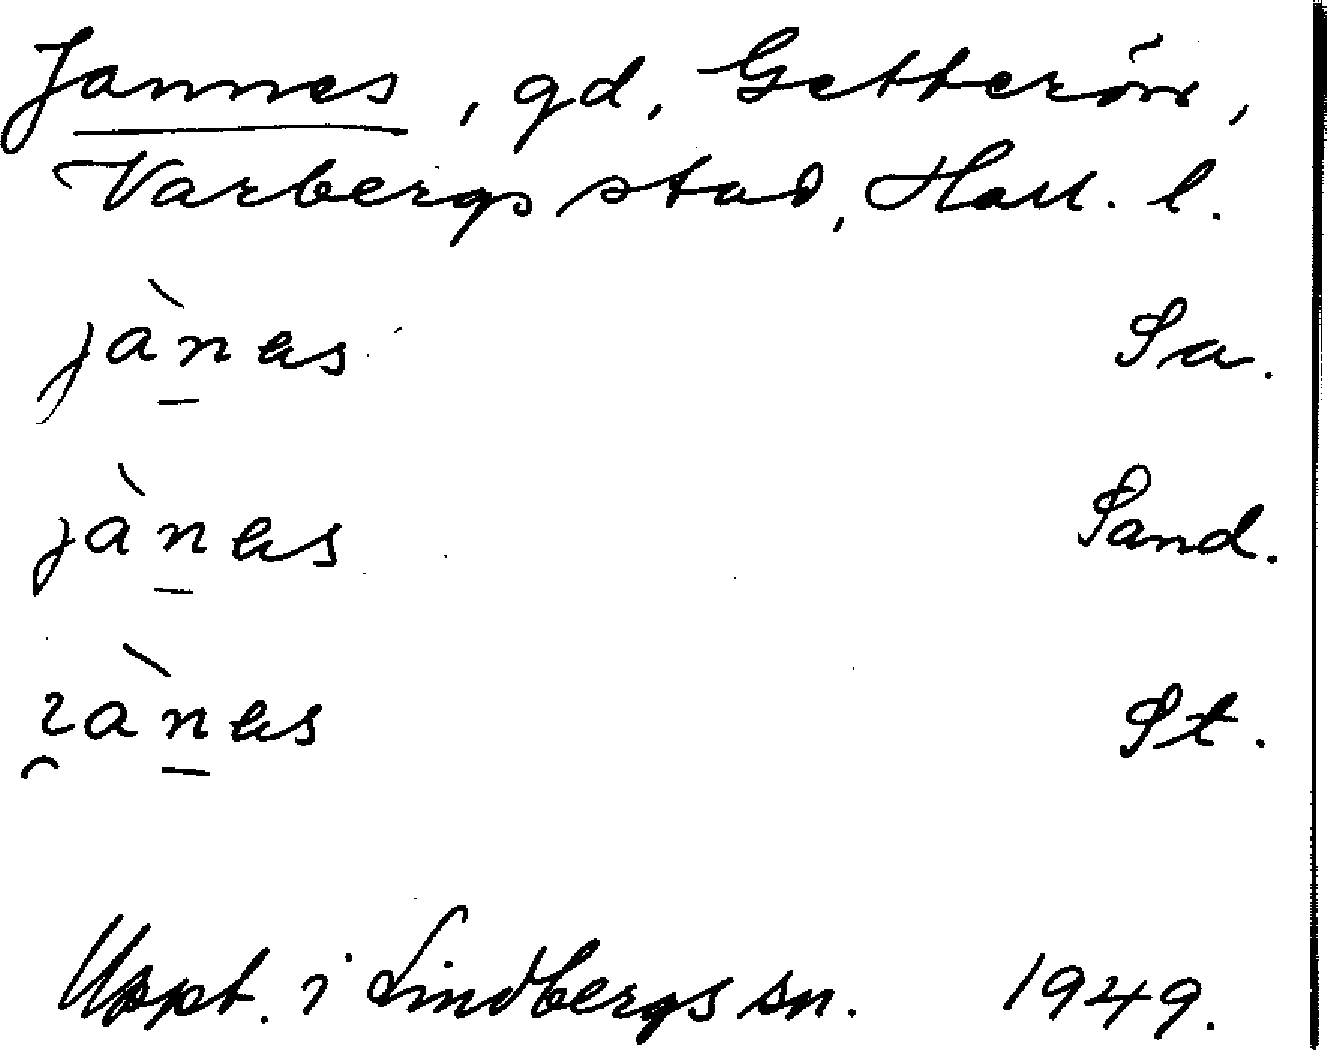 Jannes, gd, Getterön,
Varbergs stad, Hall. l.
jànas Sa.
jànas Sand.
ɿànas St.
Uppt. i Lindbergs sn. 1949.